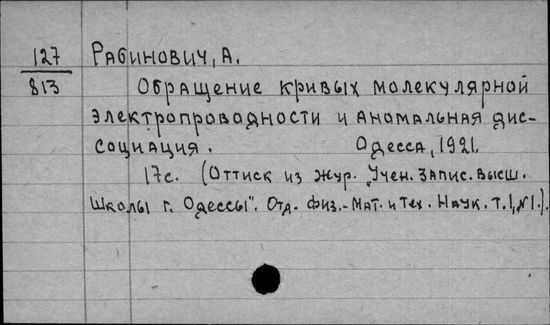 127 Рабинович, А.
813 Обращение кривых молекулярной
электропроводности и аномальная дис-
социация. Одесса, 1921.
17с. (Оттиск из жур. „Учен. Запис. Высш.
Школы г. Одессы". Отд. физ.-мат. и тех. наук. т. I, №1.).